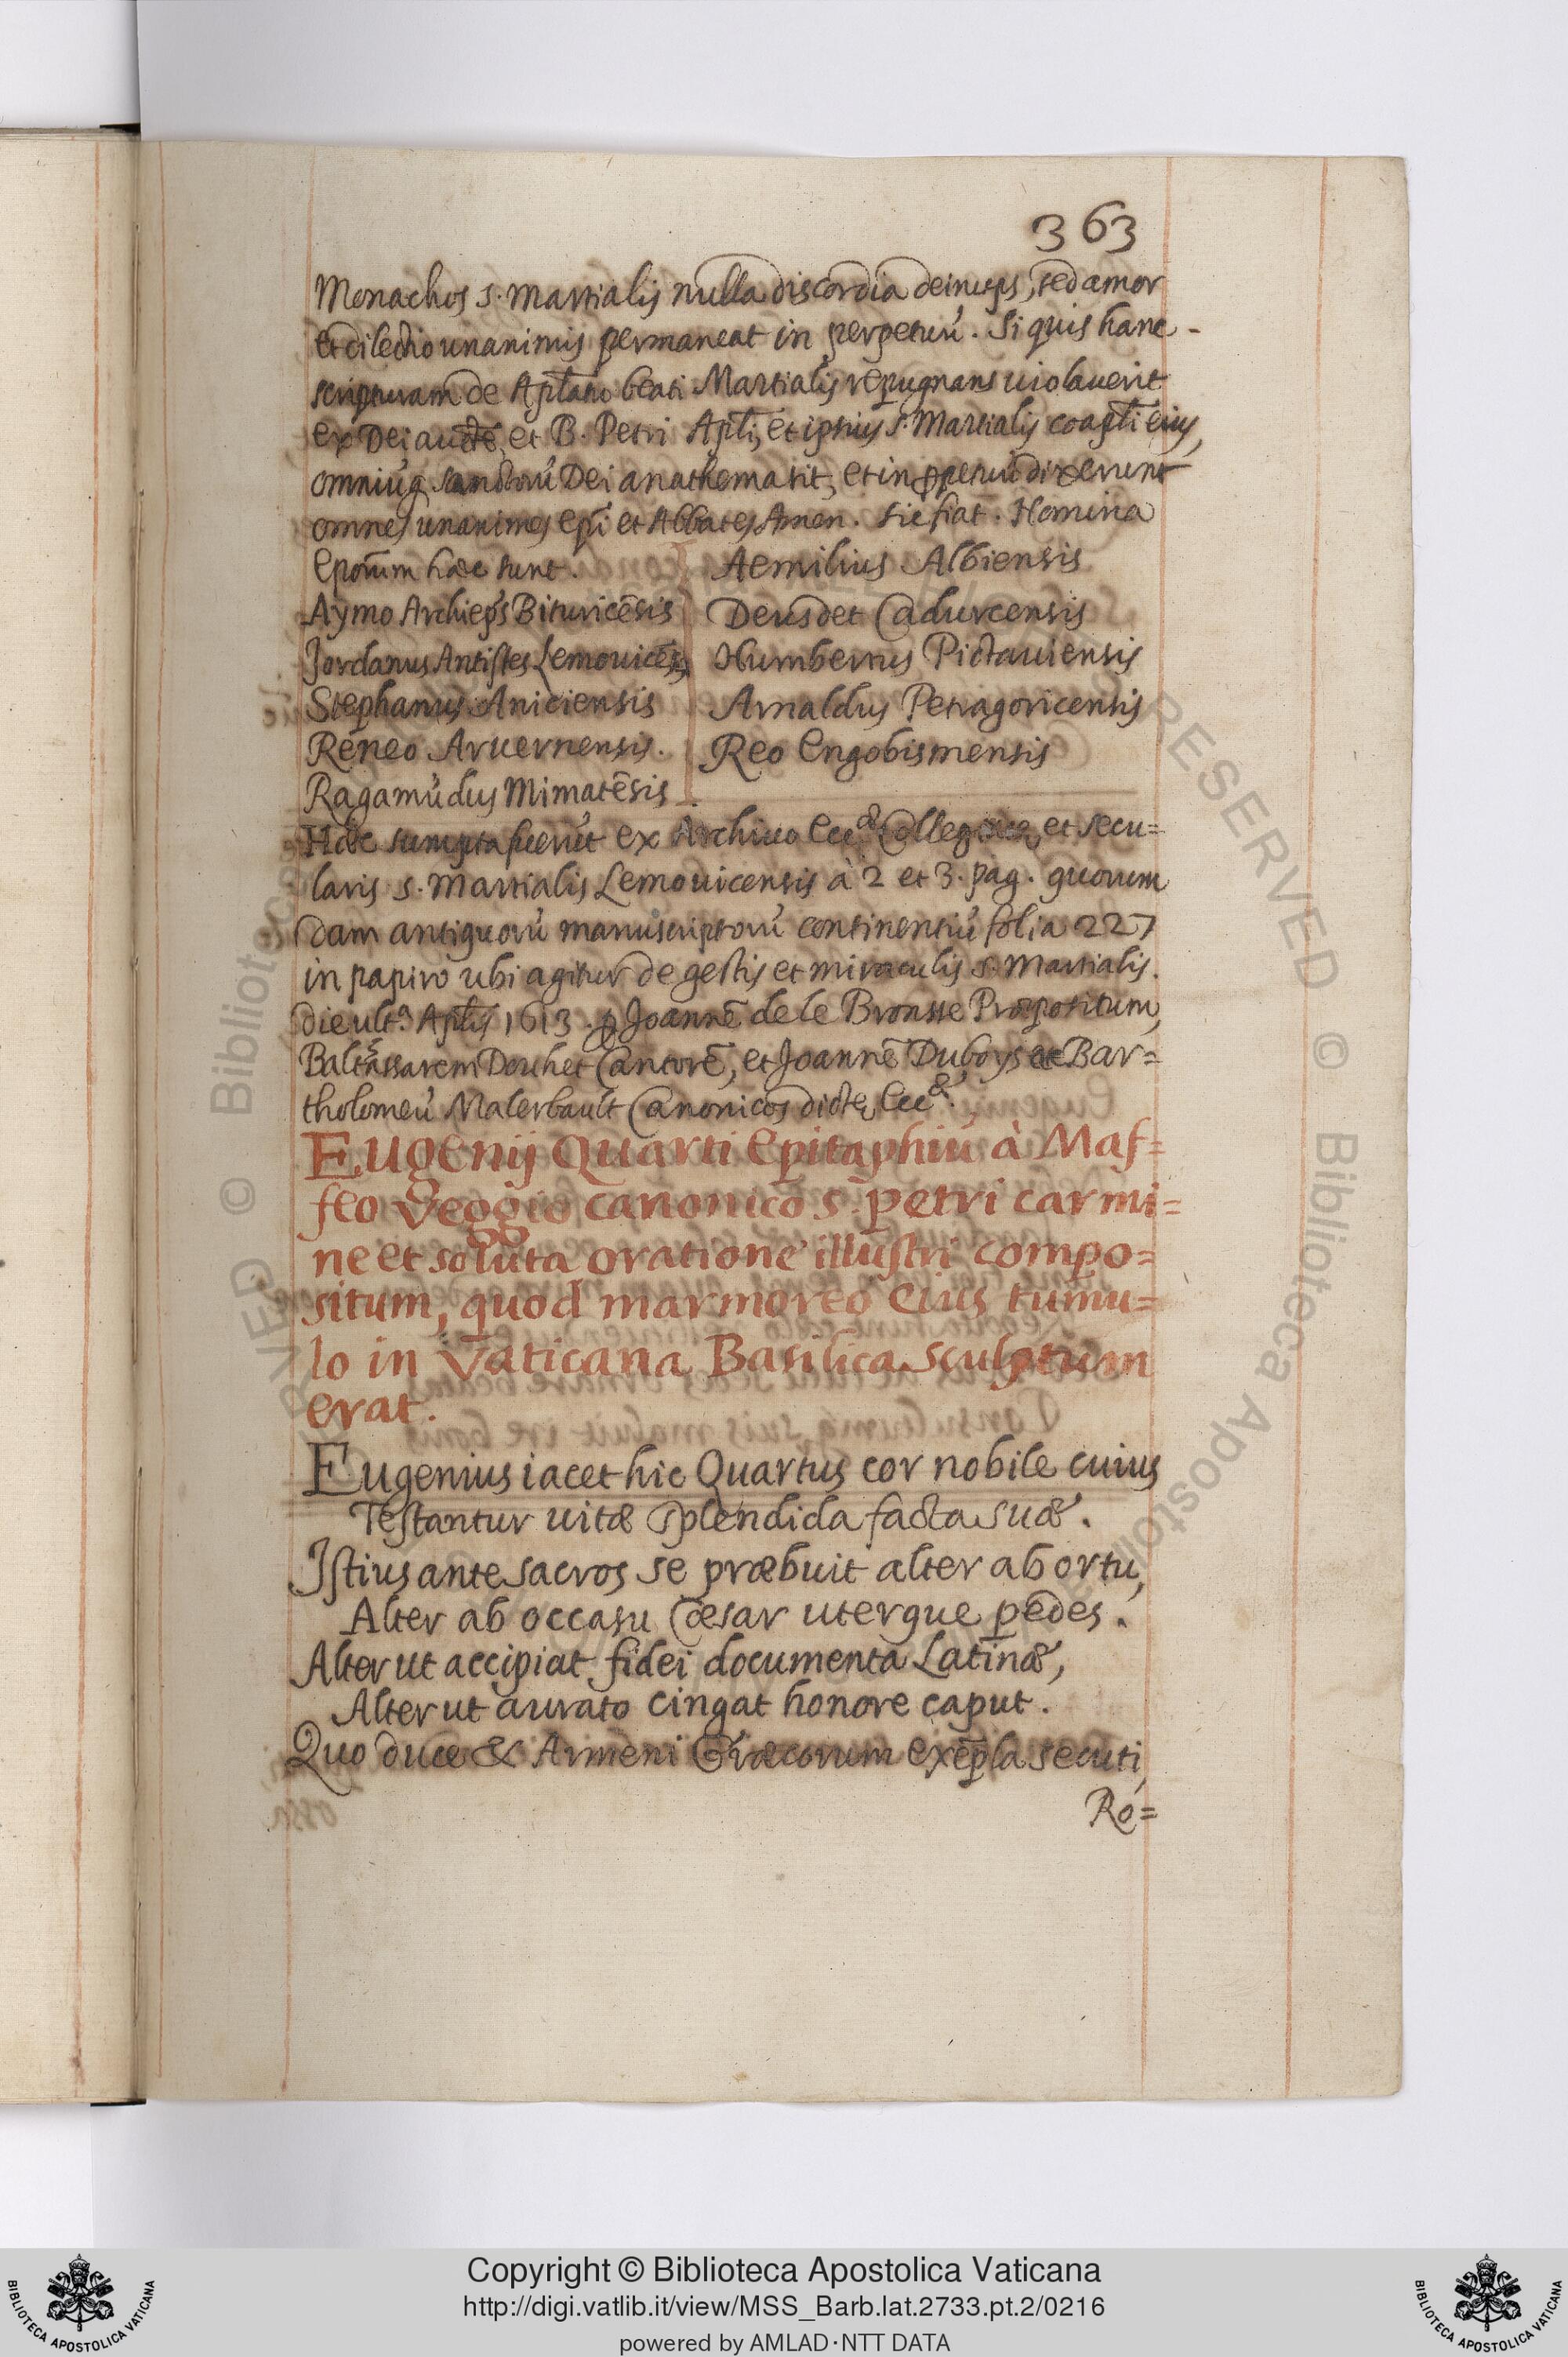 363
Monachos s. Martialis nulla discordia deinceps, sed amor
et dilectio unanimis permaneat in perpetuũ. Si quis hanc
scripturam de Apl̃atu beati Martialis repugnans uiolauerit
ex Dei aucte, et B. Petri Apl̃i, et ipsius s. Martialis coapl̃i eius,
omniũq sanctorũ Dei anathema sit, et in ꝑpetuũ dixerunt
omnes unanimes ep̃i et Abbates Amen. sic fiat. Nomina
ep̃orum hæc sunt.
Aymo Archiep̃s Bituricẽsis
Jordanus Antistes Lemouicẽs,
Stephanus Aniciensis
Reneo Aruernensis.
Ragamũdus Mimatẽsis
Aemilius Albiensis
Deusdet Cadurcensis
Humbertus Pictauiensis
Arnaldus Petragoricensis
Reo Engobismensis
Hæc sumpta fuerũt ex Archiuo Ecc.æ Collegiatæ, et secu=
laris s. Martialis Lemouicensis à 2 et 3. pag. quorum
dam antiquorũ manuscriptorũ continentiũ folia 227
in papiro ubi agitur de gestis et miraculis s. Martialis.
die ult.a Aplis 1613. ꝑ Joannẽ de le Brousse Præpositum,
Baltassarem Douhet Cantorẽ, et Joannẽ Duboys et Bar=
tholomeũ Malerbault Canonicos dictæ Ecc.æ
Eugenij Quarti Epitaphiũ à Maf=
feo Veggio canonico s. petri carmi=
ne et soluta oratione illustri compo=
situm, quod marmoreo eius tumu=
lo in Vaticana Basilica sculptum
erat.
Eugenius iacet hic Quartus cor nobile cuius
Testantur uitæ splendida facta suæ.
Istius ante sacros se præbuit alter ab ortu,
Alter ab occasu Cæsar uterque pedes.
Alter ut accipiat fidei documenta Latinæ,
Alter ut aurato cingat honore caput.
Quo duce & Armeni Græcorum exẽpla secuti,
Ro=
Copyright © Biblioteca Apostolica Vaticana
http://digi.vatlib.it/view/MSS_Barb.lat.2733.pt.2/0216
powered by AMLAD·NTT DATA